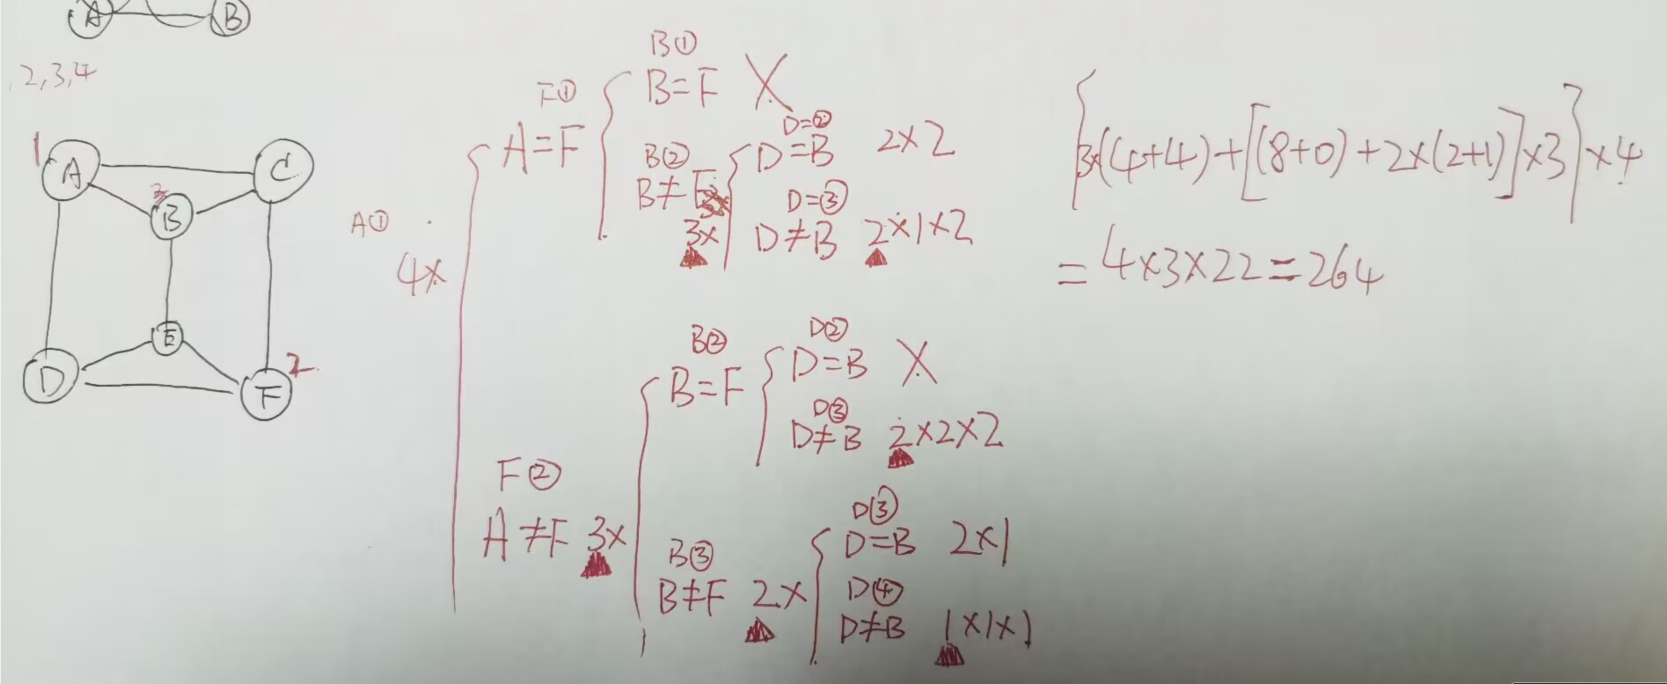 A B
2,3,4
1 A C
3 B
E
D F 2
A①
4×
F①
A=F
B①
B=F ×
B②
B≠F
3×
D=②
D=B 2×2
D=③
D≠B 2×1×2
F②
A≠F 3×
B②
B=F
D②
D=B ×
D③
D≠B 2×2×2
B③
B≠F 2×
D③
D=B 2×1
D④
D≠B 1×1×1
{3×(4+4)+[(8+0)+2×(2+1)]×3}×4
=4×3×22=264